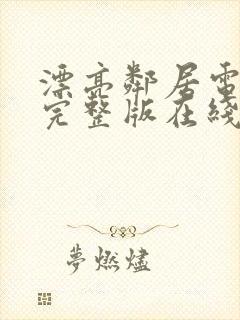 漂亮鄰居電
完整版在綫
夢燃燼